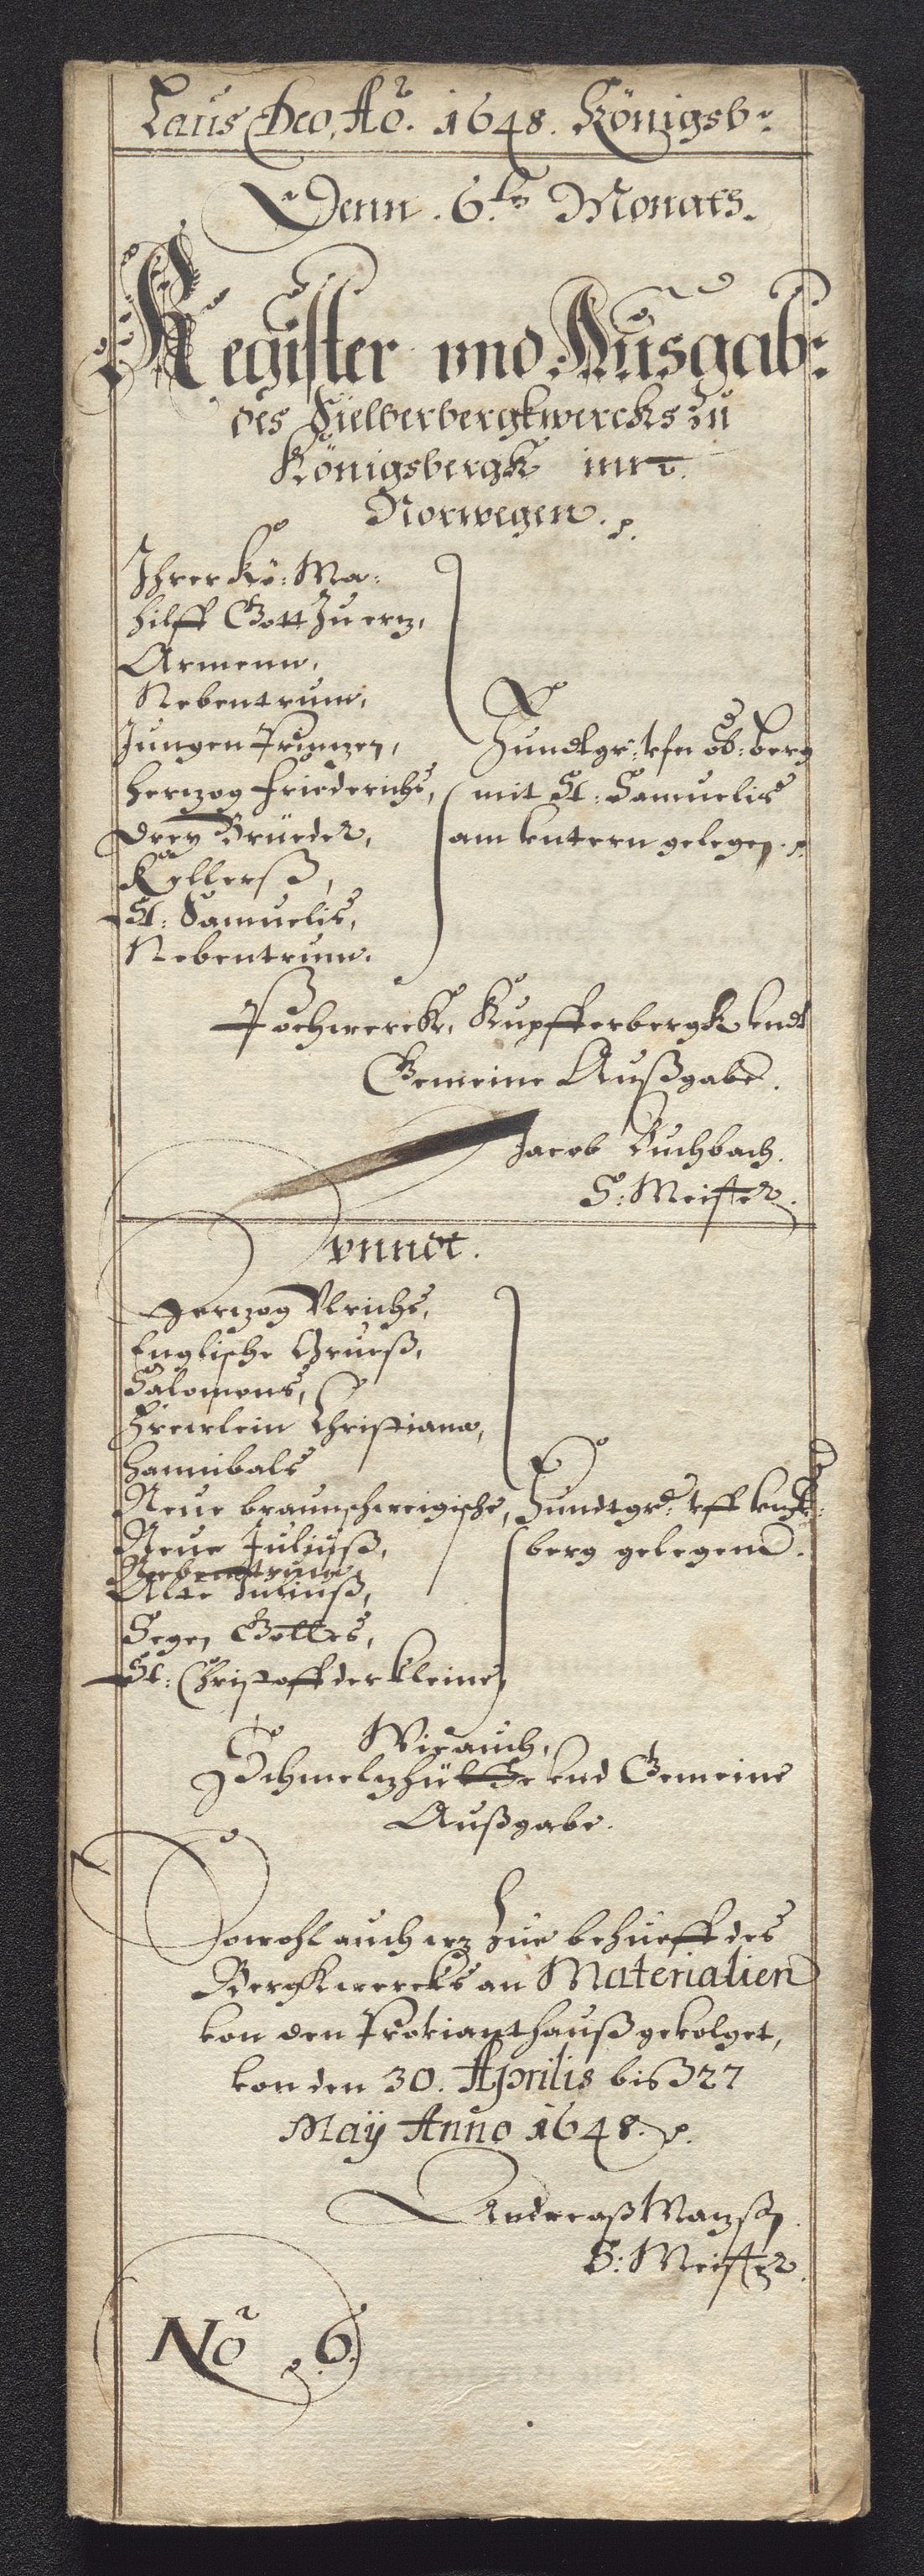 Laus Deo, Ao. 1648. Königsb:
Denn. 6.te Monats.
Register vnd Ausgab:
des Sielberbergkwercks zu
Königsbergk inn
Norwegen.
Ihrer Kö: Ma:
hilff Gott zu ertz,
Armenn,
Nebentrum,
Jungen Printzen,
Hertzog Friederichs,
Drey Brüeder,
Kellerß,
St: Samuelis,
Nebentrum.
Fundtgr: vfn Öb: berg
mit St: Samuelis
am vntern gelegen.
Pochwercke, Kupfferbergk vndt
Gemeine Außgabe.
Jacob Buchbach.
S: Meister.
vnndt.
Hertzog Vlrichs,
Englische Grueß,
Salomons,
Frewlein Christiana,
Hannibals
Neue braunschweigische,
Neue Juliuß,
Nebentrum
Alte Juliuß,
Segen Gottes,
St: Christoff der kleine,
Fundtgr: vff
berg gelegenn.
Wie auch,
Schmeltzhütte vnd Gemeine
Außgabe.
Sowohl auch wz zue behueff des
Bergkwercks an Materialien
von den Provianthauß gevolget,
von den 30. Aprilis biß 27
Maÿ Anno 1648.
Andreaß
S: Meister.
No 6.